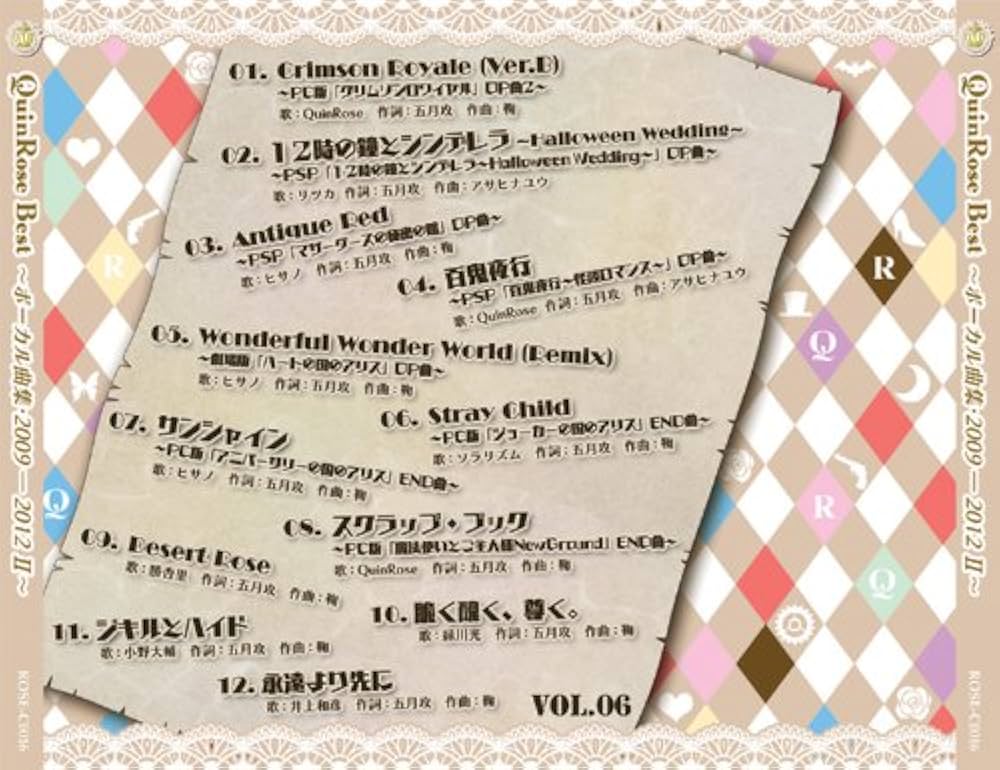 01. Crimson Royale (Ver.B)
～PC版「クリムゾンロワイヤル」OP曲2～
歌：QuinRose 作詞：五月攻 作曲：鞠
02. 12時の鐘とシンデレラ ～Halloween Wedding～
～PSP「12時の鐘とシンデレラ～Halloween Wedding～」OP曲～
歌：リツカ 作詞：五月攻 作曲：アサヒナユウ
03. Antique Red
～PSP「マザーグースの秘密の館」OP曲～
歌：ヒサノ 作詞：五月攻 作曲：鞠
04. 百鬼夜行
～PSP「百鬼夜行～怪談ロマンス～」OP曲～
歌：QuinRose 作詞：五月攻 作曲：アサヒナユウ
05. Wonderful Wonder World (Remix)
～劇場版「ハートの国のアリス」OP曲～
歌：ヒサノ 作詞：五月攻 作曲：鞠
06. Stray Child
～PC版「ジョーカーの国のアリス」END曲～
歌：ソラリズム 作詞：五月攻 作曲：鞠
07. サンシャイン
～PC版「アニバーサリーの国のアリス」END曲～
歌：ヒサノ 作詞：五月攻 作曲：鞠
08. スクラップ・ブック
～PC版「魔法使いとご主人様NewGround」END曲～
歌：QuinRose 作詞：五月攻 作曲：鞠
09. Desert Rose
歌：勝杏里 作詞：五月攻 作曲：鞠
10. 脆く醜く、尊く。
歌：緑川光 作詞：五月攻 作曲：鞠
11. ジキルとハイド
歌：小野大輔 作詞：五月攻 作曲：鞠
12. 永遠より先に
歌：井上和彦 作詞：五月攻 作曲：鞠
VOL.06
QuinRose Best ～ボーカル曲集・2009―2012 II～
ROSE-C0116
QuinRose Best ～ボーカル曲集・2009―2012 II～
ROSE-C0116
R
Q
R
Q
R
Q